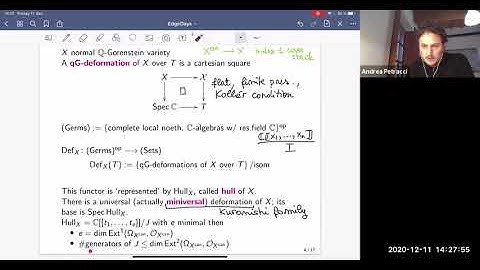 16:27 Friday 11 dec
EdgeDays
X normal Q-Gorenstein variety
X^can → X index 1 cover stack
A qG-deformation of X over T is a cartesian square
X → 𝒳
□
Spec ℂ → T
flat, finite pres..,
Kollár condition
(Germs) := {complete local noeth. ℂ-algebras w/ res.field ℂ}^op
ℂ[[x₁,...,xₙ]]
I
Def_X : (Germs)^op → (Sets)
Def_X(T) := {qG-deformations of X over T} /isom
This functor is 'represented' by Hull_X, called hull of X.
There is a universal (actually miniversal) deformation of X; its
base is Spec Hull_X.
Kuranishi family
Hull_X = ℂ[[t₁,...,t_e]]/J with e minimal then
• e = dim Ext¹(Ω_X^can, O_X^can)
• #generators of J ≤ dim Ext²(Ω_X^can, O_X^can)
Andrea Petracci
2020-12-11 14:27:55